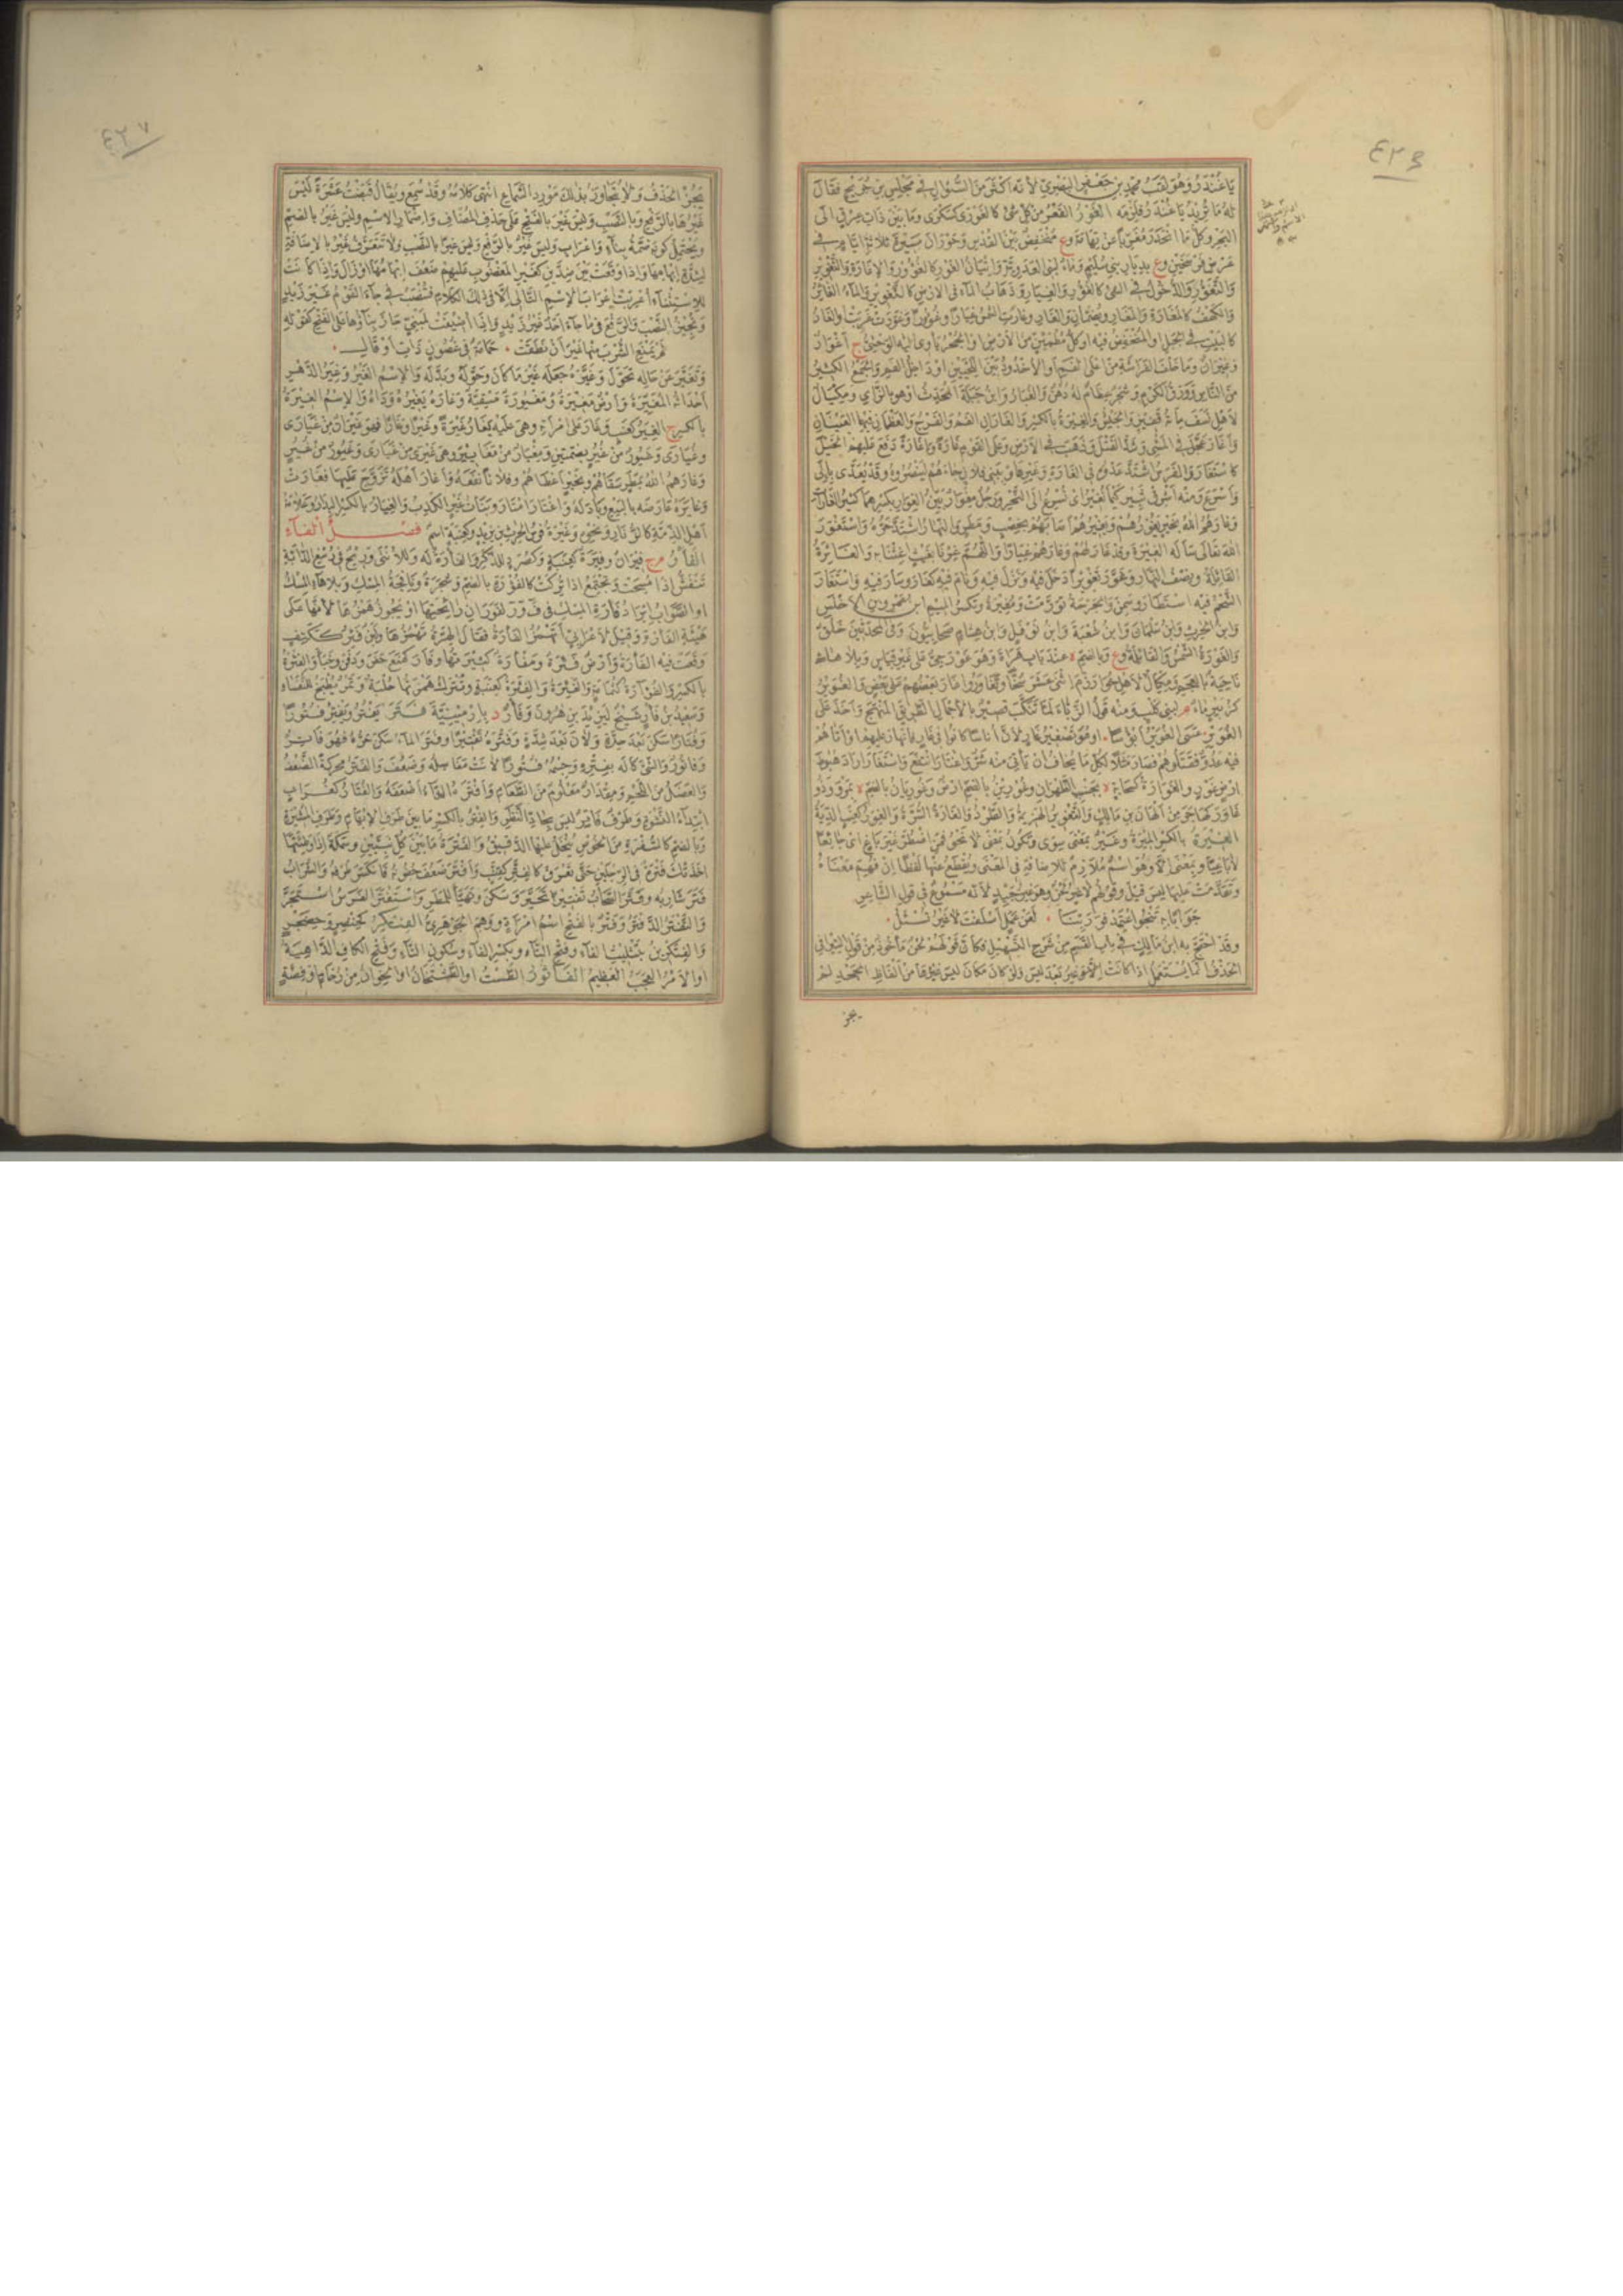 يَا غُنْدَرُ وَهُوَ لَقَبُ محمّدِ بنِ جَعْفَرٍ البَصْرِيّ لأنّه اَكْثَرَ مِنَ السُّؤَالِ فى مَجْلِسِ بنِ جُرَيْجٍ فقَالَ
لهُ مَا تُرِيدُ يَا غُنْدَرُ فلَزِمَه الغَوْرُ القَعْرُ مِنْ كلّ شىءٍ كالغَوْرَى كسَكْرَى وَمَا بَيْنَ ذَاتِ عِرْقٍ الَى
البَحْرِ وكلّ مَا انْحَدَرَ مُغَرِّبًا عن تِهَامَةَ وع مُنْخَفِضٌ بَيْنَ القُدْسِ وَحَوْرَانَ مَسِيرَةَ ثلاثةِ ايّامٍ فى
عَرْضِ فَرْسَخَيْنِ وع بدِيَارِ بنى سُلَيْمٍ وَمَاءٌ لبنى العَدَوِيّةِ وَاِتْيَانُ الغَوْرِ كالغُؤُورِ وَالاِغَارَةِ وَالتَّغْوِيرِ
وَالتَّغَوُّرِ وَالدُّخُولُ فى الشىء كالغُؤُورِ وَالغِيَارِ وَذَهَابُ المآءِ فى الارْضِ كالتَّغْوِيرِ وَالمآءُ الغَائِرُ
وَالكَهْفُ كالمَغَارَةِ وَالمَغَارِ ويُضَمَّانِ وَالغَارِ وغَارَتِ الشمسُ غِيَارًا وغُؤُورًا وَغَوَّرَتْ غَرَبَتْ والغَارُ
كالبَيْتِ فى الجَبَلِ او المُنْخَفِضُ فيه او كلّ مُطْمَئِنٍّ مِنَ الارْضِ او الجُحْرُ يَأوِى اليْهِ الوَحْشِىُّ ج أغْوَارٌ
وَغِيرَانٌ ومَا خَلْفَ الفَرَاشَةِ مِنْ اَعْلَى الفَمِ اَو الأخْدُودُ بَيْنَ اللَّحْيَيْنِ اوْ دَاخِلُ الفَمِ وَالجَمْعُ الكثيرُ
مِنَ النّاسِ وَوَرَقُ الكَرْمِ وَشَجَرٌ عِظَامٌ لهُ دُهْنٌ وَالغُبَارُ وَابنُ جَبَلَةَ المُحَدِّثُ اوْ هو بالزّايِ وَمِكْيَالٌ
لأهْلِ نَسَفَ مائةُ قَفِيزٍ وَالجَيْشُ وَالغَيْرَةُ بالكسرِ والغَارَانِ الفَمُ وَالفَرْجُ وَالعَظْمانِ فيهما العَيْنَانِ
وَأغَارَ عَجَّلَ فى المَشْىِ وَشَدَّ الفَتْلَ وَذَهَبَ فى الارْضِ وعلى القَوْمِ غَارَةً وَاِغَارَةً دَفَعَ عليهمُ الخَيْلَ
كاسْتَغَارَ وَالفَرَسُ اشْتَدَّ عَدْوُهُ فى الغَارَةِ وَغَيْرِهَا وَبنى فلانٍ جَاءَهُمْ ليَنْصُرُوهُ وَقَدْ يُعَدَّى بإلَى
وَأسْرَعَ وَمِنْه اَشْرِقْ ثَبِيرُ كَيْمَا نُغِيرَ اى نُسْرِعَ الى النَّحْرِ وَرَجُلٌ مِغْوَارٌ بَيِّنُ الغِوَارِ بكسرِهما كثيرُ الغَارَةِ
وغَارَهُمُ اللهُ بخَيْرٍ يَغُورُهُمْ وَيَغِيرُهُمْ اَصَابَهُمْ بخِصْبٍ وَمَطَرٍ وَالنَّهَارُ اشْتَدَّ حَرُّهُ وَاسْتَغْوَرَ
اللهَ تَعَالَى سَألَهُ الغِيرَةَ وقد غَارَ لَهُمْ وَغَارَهُمْ غِيَارًا وَاللّهُمَّ غِرْنَا بغَيْثٍ اَغِثْنَا بهِ وَالغَـائِرَةُ
القَائِلةُ ونِصْفُ النّهَارِ وَغَوَّرَ تَغْوِيرًا دَخَلَ فيهِ وَنَزَلَ فيهِ وَنَامَ فيه كغَارَ وَسَارَ فيهِ وَاسْتَغَارَ
الشَّحْمُ فيه اسْتَطَارَ وَسَمِنَ وَالجُرْحَةُ تَوَرَّمَتْ وَمُغِيرَةُ وَتُكسَرُ الميمُ ابن عَمْرِو بنِ الاَخْنَسِ
وَابنُ الحٰرِثِ وَابنُ سَلْمَانَ وَابنُ شُعْبَةَ وَابنُ نَوْفَلٍ وَابنُ هِشَامٍ صَحَابِيُّونَ وَفى المحَدِّثينَ خَلْقٌ
وَالغَوْرَةُ الشّمسُ وَالقَائِلةُ وع وَبالضمِ ة عِنْدَ بَابِ هَرَاةَ وَهُوَ غَوْرَجِىٌّ عَلى غَيْرِ قِيَاسٍ وبلا هاءٍ
نَاحِيَةٌ بالعَجَمِ وَمِكْيَالٌ لاَهْلِ خُوَارَزْمَ اثنَى عَشَرَ سُخًّا وَتَغَاوَرُوا اغَارَ بَعْضُهُمْ عَلى بَعْضٍ وَالغُوَيْرُ
كزُبَيْرٍ مَاءٌ م لبَنِى كَلْبٍ وَمِنْه قَوْلُ الزَّبّاءِ لَمّا تَنَكَّبَ قَصِيرٌ بالاَجْمَالِ الطَّرِيقَ المَنْهَجَ وَاَخَذَ عَلَى
الغُوَيْرِ عَسَى الغُوَيْرُ اَبْؤُسًا. اوهُوَ تَصْغِيرُ غَارٍ لأنّ اُنَاسًا كانُوا فى غَارٍ فانْهَارَ عليهم او اَتَاهُمْ
فيه عَدُوٌّ فقَتَلُوهُمْ فصَارَ مَثَلًا لكُلّ مَا يُخَافُ اَنْ يَأتِىَ مِنْه شَرٌّ وَاغْتَارَ انْتَفَعَ وَاسْتَغَارَ اَرَادَ هُبُوطَ
ارْضٍ غَوْرٍ والغَوَارَةُ كسَحَابةٍ ة بجَنْبِ الظَّهْرَانِ وغُورِينُ بالضمِ اَرْضٌ وَغُورِيَانُ بالضمِ ة بمَرْوَ وَذُو
غَاوَرَ كهَاجَرَ مِنْ أَلْهَانَ بنِ مَالِكٍ وَالتَّغْوِيرُ الهَزِيمةُ وَالطَّرْدُ وَالغَارَةُ السُّرَّةُ وَالغِوَرُ كعِنَبٍ الدِّيَةُ
الغِـيْرَةُ بالكسرِ المِيرَةُ وغَـيْرٌ بمَعْنَى سِوَى وَتكُونُ بمَعْنَى لاَ نَحْوُ فَمَنِ اضْطُرَّ غَيْرَ بَاغٍ اى جَائِعًا
لاَ بَاغِيًا وَبمَعْنَى اِلاَّ وَهُوَ اسْمٌ مُلازِمٌ للإضَافةِ فى المَعْنَى ويُقْطَعُ عَنْهَا لَفْظًا اِنْ فُهِمَ مَعْنَاهُ
وَتَقَدَّمَتْ عليهَا ليسَ قيلَ وَقَوْلُهُمْ لاَ غَيْرُ لَحْنٌ وهُوَ غَيْرُ جَيِّدٍ لأنّه مَسْمُوعٌ فى قولِ الشّاعِرِ
جَوَابًا بهِ تَنْجُو اعْتَمِدْ فوَرَبِّنَـا . لَعَنْ عَمَلٍ اَسْلَفْتَ لاَ غَيْرُ تُسْئَلُ .
وقد احْتَجَّ به ابنُ مَالِكٍ فى بابِ القَسَمِ مِنْ شَرْحِ التَّسْهِيلِ فكأنّ قَوْلَهُمْ لَحْنٌ مَأخُوذٌ مِنْ قَوْلِ السِّيرَافىِّ
الحَذْفُ اِنّمَا يُسْتَعْمَلُ اذا كَانَتْ اِلاّ وَغَيْرُ بَعْدَ ليسَ ولَوْ كَانَ مَكَانَ ليسَ غَيْرُهَا مِنْ اَلْفَاظِ الجَحْدِ لَمْ
يجز
يَجُزِ الحَذْفُ وَلاَ يُتَجَاوَزُ بذلك مَوْرِدُ السَّمَاعِ انتَهَى كَلاَمُهُ وَقَدْ سُمِعَ وَيُقَالُ قَبَضْتُ عَشَرَةً لَيْسَ
غَيْرُهَا بالرَّفْعِ وَبالنَّصْبِ وَلَيْسَ غَيْرَ بالفَتْحِ عَلى حَذْفِ المُضَافِ وَاِضْمَارِ الاِسْمِ وليسَ غَيْرُ بالضمِّ
ويَحْتَمِلُ كونَه ضَمّةَ بِنَاءٍ وَاِعْرَابٍ وَليسَ غَيْرٌ بالرَّفْعِ وَليسَ غيرًا بالنَّصْبِ وَلاَ تَتَعَرَّفُ غَيْرُ بالاِضَافةِ
لشِدَّةِ اِبْهامِهَا وَاِذَا وَقَعَتْ بَيْنَ ضِدَّيْنِ كغَيْرِ المَغْضُوبِ عَلَيْهِمْ ضَعُفَ اِبْهَامُهَا اوْ زَالَ وَاِذَا كَانَتْ
للاِسْتِثْنَآءِ اُعْرِبَتْ اِعْرَابَ الاِسْمِ التَّالِى اِلاَّ فى ذلكَ الكَلاَمِ فتُنْصَبُ فى جَآءَ القَوْمُ غَـيْرَ زَيْدٍ
وَتُجِيزُ النَّصْبَ وَالرَّفْعَ فى مَا جَاءَ اَحَدٌ غَيْرُ زَيْدٍ وَاِذَا اُضِيفَتْ لمَبْنِىٍّ جَازَ بِنَآؤُهَا عَلَى الفَتْحِ كقَوْلهِ
لَمْ يَمْنَعِ الشُّرْبَ مِنْهَا غَيْرَ اَنْ نَطَقَتْ . حَمَامَةٌ فى غُصُونٍ ذَاتِ اَوْقَالِـ .
وَتَغَيَّرَ عَنْ حَالِه تَحَوَّلَ وَغَيَّرَهُ جَعَلَه غَيْرَ مَا كَانَ وَحَوَّلَهُ وَبَدَّلَهُ وَالاِسْمُ الغَيْرُ وَغِيَرُ الدَّهْرِ
اَحْدَاثُهُ المُغَيِّرَةُ وَاَرْضٌ مَغِـيرَةٌ وَمَغْـيُورَةٌ مَسْقِيَّةٌ وَغَارَهُ يَغِيرُهُ وَدَاهُ وَالاِسْمُ الغِـيْرَةُ
بالكسرِ ج الغِيَرُ كعِنَبٍ وَغَارَ عَلى امْرَأَتِهِ وهى عَلَيْهِ تَغَارُ غَيْرَةً وَغَيْرًا وَغَارًا فهُوَ غَيْرَانُ مِنْ غَيَارَى
وغُيَارَى وَغَيُورٌ مِنْ غُيُرٍ بضَمَّتَيْنِ وَمِغْيَارٌ مِنْ مَغَايِيرَ وهى غَيْرَى مِنْ غَيَارَى وَغَيُورٌ مِنْ غُيُرٍ
وَغَارَهُمُ اللهُ بمَطَرٍ سَقَاهُمْ وَبخَيْرٍ اَعْطَاهُمْ وفُلاَنًا نَفَعَهُ وَاَغَارَ اَهْلَهُ تَزَوَّجَ عَلَيْهَا فغَارَتْ
وغَايَرَهُ عَارَضَه بالبَيْعِ وَبَادَلَهُ وَاغْتَارَ امْتَارَ وَبَنَاتُ غَيْرٍ الكَذِبُ وَالغِيَارُ بالكسرِ البِدَارُ وَعَلاَمَةُ
اَهْلِ الذِّمّةِ كالزُّنّارِ وَنَحْوِهِ وَغِيَرَةُ فَرَسُ الحٰرِثِ بنِ يَزِيدَ وَكعِنَبَةٍ اسْمٌ فصـــلُ الفـآء
الْفَأْرُ م ج فِيرَانٌ وَفِيَرَةٌ كعِنَبَةٍ وَكصُرَدٍ للذَّكَرِ وَالفَأْرَةُ لَهُ وَللاُنْثَى وَرِيحٌ فى رُسْغِ الدّابّةِ
تَنْفَشُّ اذا مُسِحَتْ وَتَجْتَمِعُ اذا تُرِكَتْ كالفُؤْرَةِ بالضمِ وَشَجَرَةٌ وَنَافِجَةُ المِسْكِ وَبلاَ هَاءٍ المِسْكُ
اوِ الصَّوَابُ اِيرَادُ فَارَةِ المِسْكِ فى ف و ر لفَوَرَانِ رَائِحَتِهَا اوْ يَجُوزُ هَمْزُهَا لاَنّهَا عَلَى
هَيْئَةِ الفَأرَةِ وَقيلَ لاَعْرَابىٍّ أَتَهْمِزُ الفَأْرَةَ فقَالَ الهِرَّةُ تَهْمِزُهَا وَلَبَنٌ فَئِرٌ كـكَتِفٍ
وَقَعَتْ فيه الفَأْرَةُ وَاَرْضٌ فَـئِرَةٌ وَمَفْأَرَةٌ كثِيرَتُهَا وفَأَرَ كمَنَعَ حَفَرَ وَدَفَنَ وَخَبَأَ وَالفِئْرَةُ
بالكسرِ وَالفُؤَارَةُ كثُمَامَةٍ وَالفَئِيرَةُ وَالفِئَرَةُ كعِنَبَةٍ وتُتْرَكُ هَمْزَتُهَا حُلْبَةٌ وَتَمْرٌ يُطْبَخُ للنُّفَسَاءِ
وَسَعِيدُ بنُ فَأْرٍ شَيْخٌ ليَزِيدَ بنِ هٰرُونَ وَفَأْرٌ د بارْمِينِيَةَ فَــتَرَ يَفْتُرُ وَيَفْتِرُ فُتُورًا
وَفُتَارًا سَكَنَ بَعْدَ حِدَّةٍ وَلاَنَ بَعْدَ شِدَّةٍ وَفَتَّرَهُ تَفْتِيرًا وَفَتَرَ المآءُ سَكَنَ حَرُّهُ فهُوَ فَاتِـرٌ
وَفَاتُورٌ وَالشَّىءَ كالَه بفِتْرِهِ وَجِسْمُه فُـتُورًا لاَنَتْ مَفَاصِلُهُ وَضَعُفَ وَالفَتَرُ محركةً الضَّعْفُ
وَالعَضَلُ مِنَ اللَّحْمِ وَمِقْدَارٌ مَعْلُومٌ مِنَ الطَّعَامِ وَاَفْتَرَهُ الدَّاءُ اَضْعَفَهُ وَالفُتَارُ كغُـرَابٍ
ابْتِدَآءُ النَّشْوَةِ وَطَرْفٌ فَاتِرٌ ليسَ بحَادِّ النَّظَرِ وَالفِتْرُ بالكسرِ مَا بَينَ طَرَفِ الاِبْهَامِ وَطَرَفِ المُشِيرَةِ
وَبالضمِ كالسُّفْرَةِ مِنَ الخُوصِ يُنْخَلُ عليها الدّقيقُ وَالفَتْرَةُ مَا بَيْنَ كلِّ نَبِيَّيْنِ وَسَمَكَةٌ اِذَا وَطِئْتَهَا
اَخَذَتْكَ فَتْرَةٌ فى الرِّجْلَيْنِ حَتّى تَعْرَقَ كالفِتَّرِ كقِنَّبٍ وَاَفْتَرَ ضَعُفَ جُفُونُهُ فَانْكَسَرَ طَرْفُهُ وَالشَّرَابُ
فَتَرَ شَارِبُه وفَتَّرَ السَّحَابُ تَفْتِيرًا تَحَيَّرَ وَسَكَنَ وَتَهَيَّأَ للْمَطَرِ وَاسْتَفْتَرَ الفَرَسُ اسْـتَجَرَّ
وَالتَّفْتَرُ الدَّفْتَرُ وَفَتْرُ بالفَتْحِ اسْمُ امْرَأَةٍ وَوَهِمَ الجَوْهَرِىُّ الفِتَـكْرُ كخِنْصِرٍ وَحِضَجْرٍ
وَالفَتَكْرِينُ بتَثْلِيثِ الفاء وفتْحِ التّاءِ وَبكسْرِ الفَاءِ وسُكونِ التَّاءِ وَفَتْحِ الكَافِ الدَّاهِيَةُ
اوالأمْرُ العَجَبُ العَظِيمُ الفَـاثُورُ الطَّسْتُ اوالطَّشْتْخَانُ اوالخِوَانُ مِنْ رُخَامٍ اوْ فِضّةٍ
٤٢٧